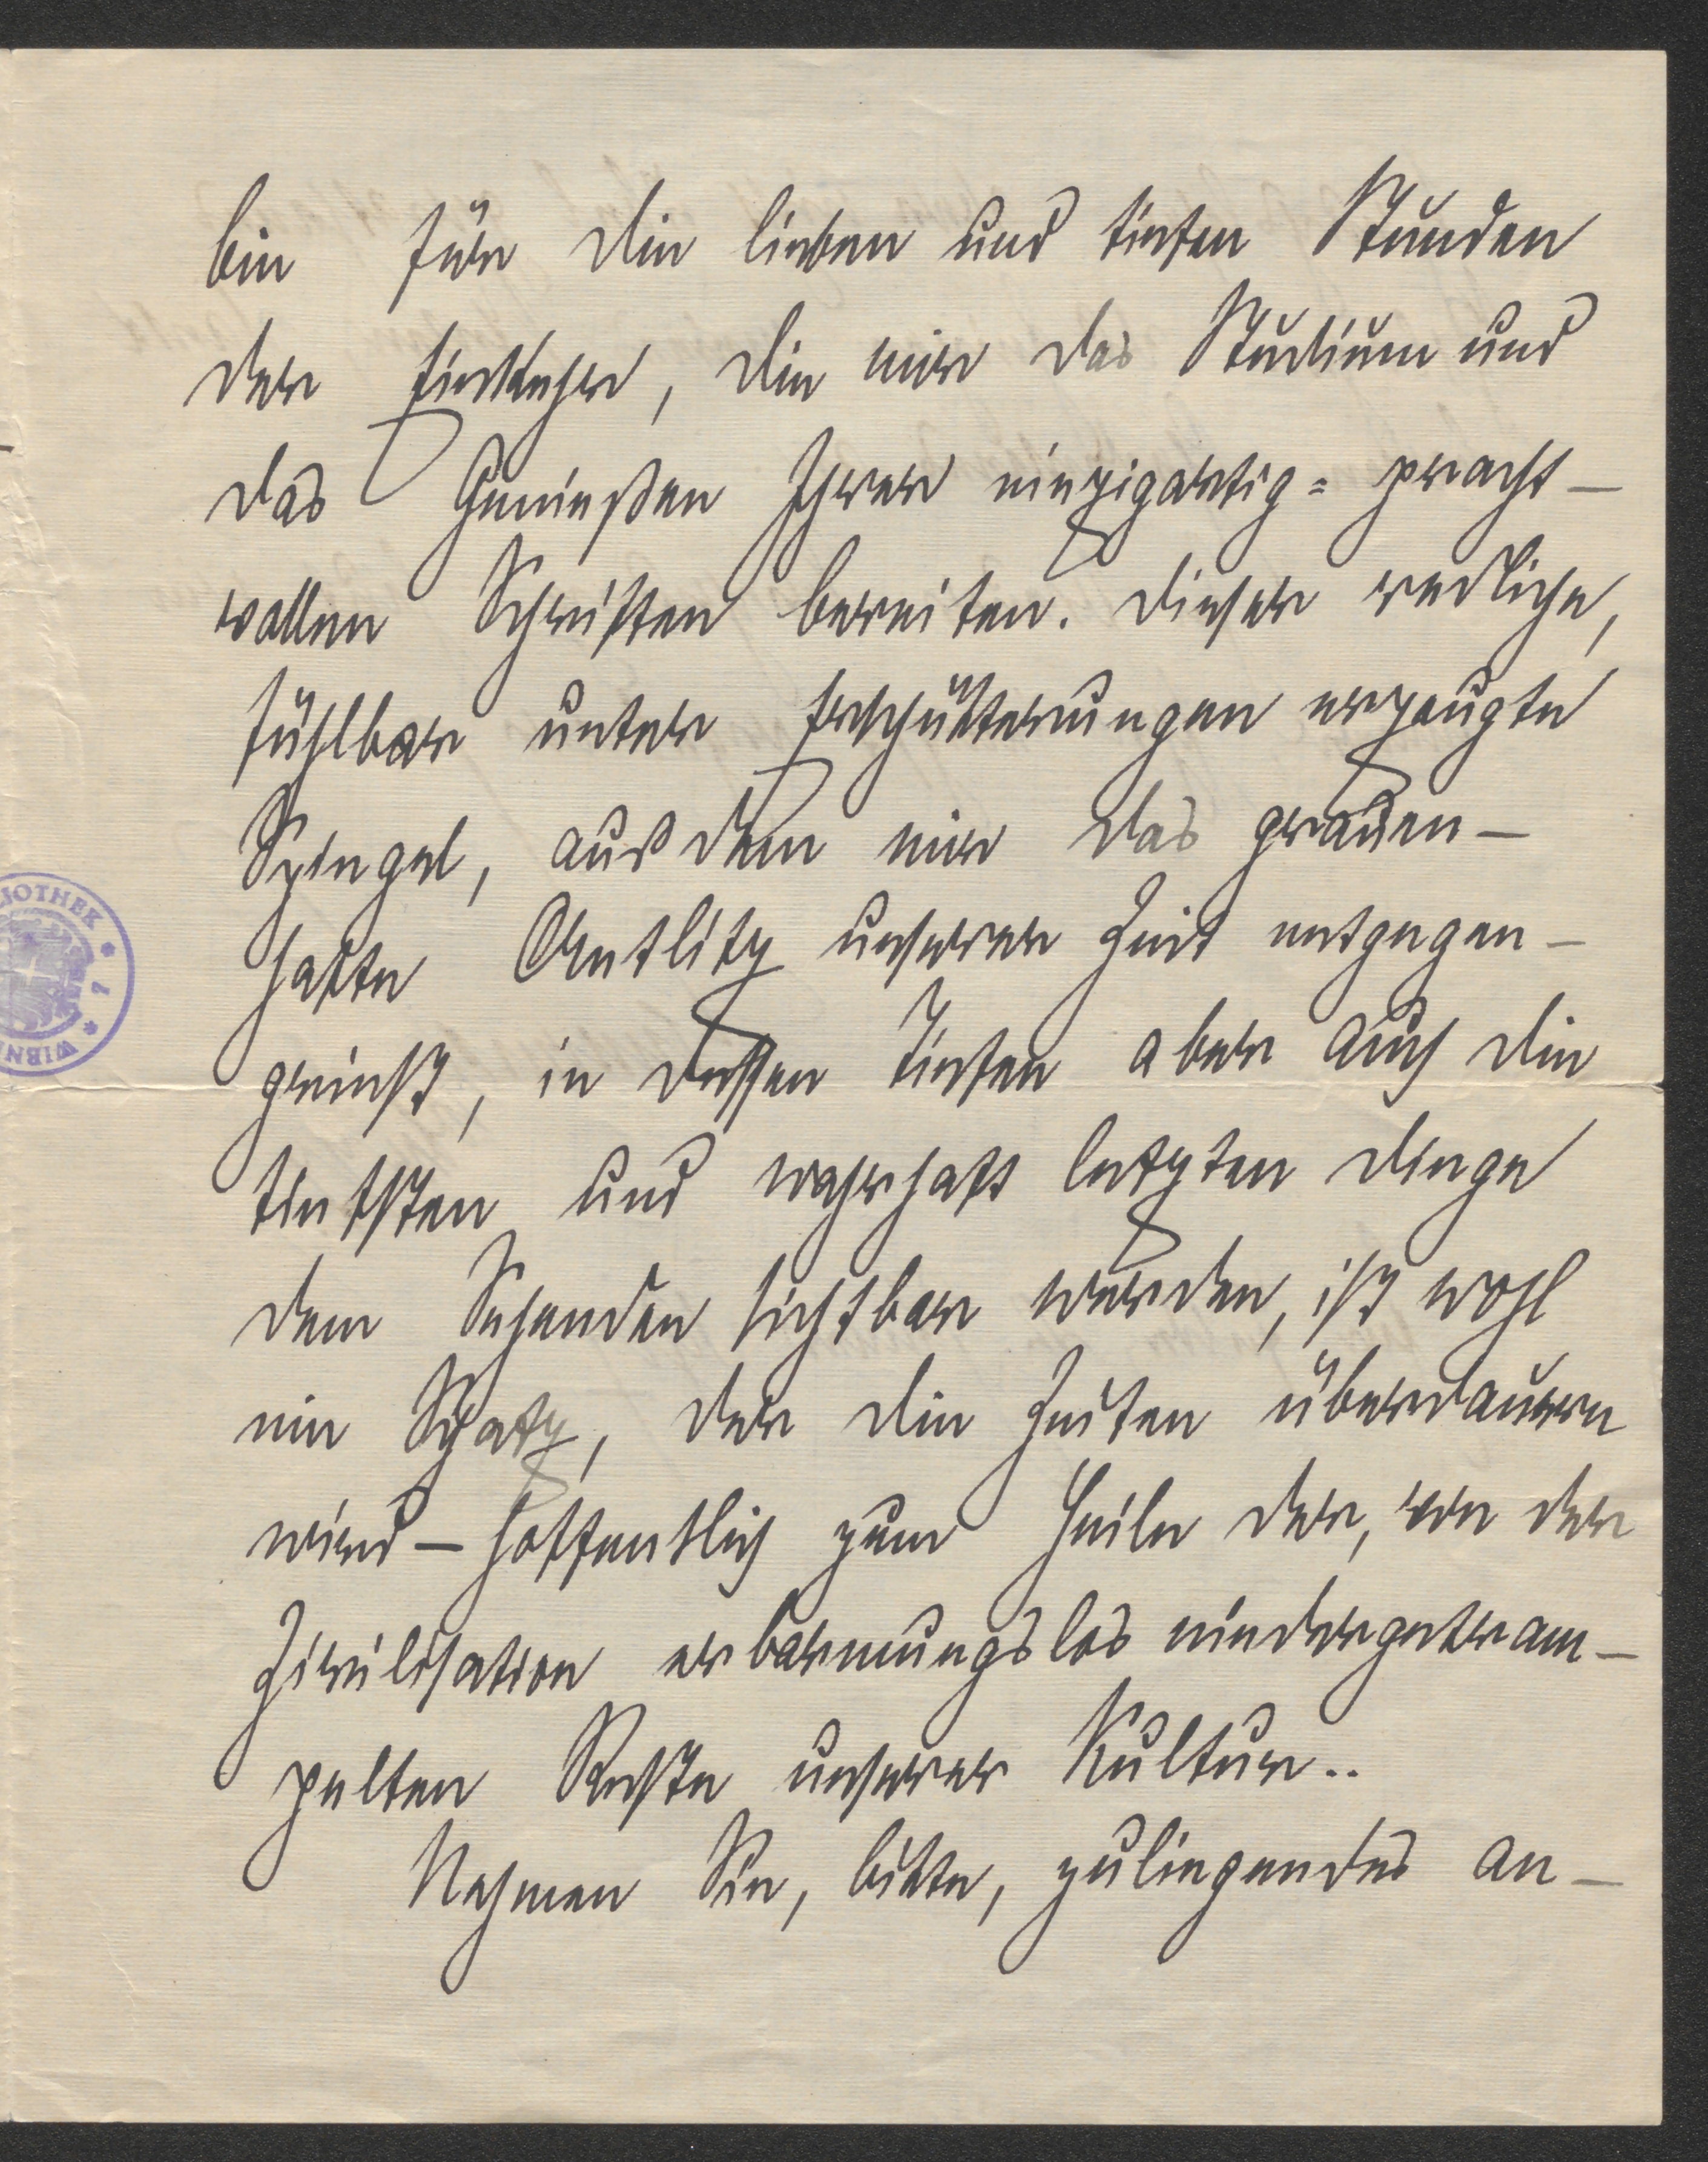 bin für die lieben und tiefen Stunden
der Einkehr, die mir das Studium und
das Genießen Ihrer einzigartig= pracht-
vollen Schriften bereiten. Dieser redliche,
fühlbar unter Erschütterungen erzeugte
Spiegel, aus dem mir das grauen-
hafte Antlitz unserer Zeit entgegen-
greinst, in dessen Tiefen aber auch die
tiefsten und wahrhaft letzten Dinge
dem Sehenden sichtbar werden, ist wohl
ein Schatz, der die Zeiten überdauern
wird - hoffentlich zum Heile der, von der
Zivilisation erbarmungslos niedergetram-
pelten Reste unserer Kultur..
Nehmen Sie, bitte, zuliegendes an-
LIOTHEK * 7 * WIEN